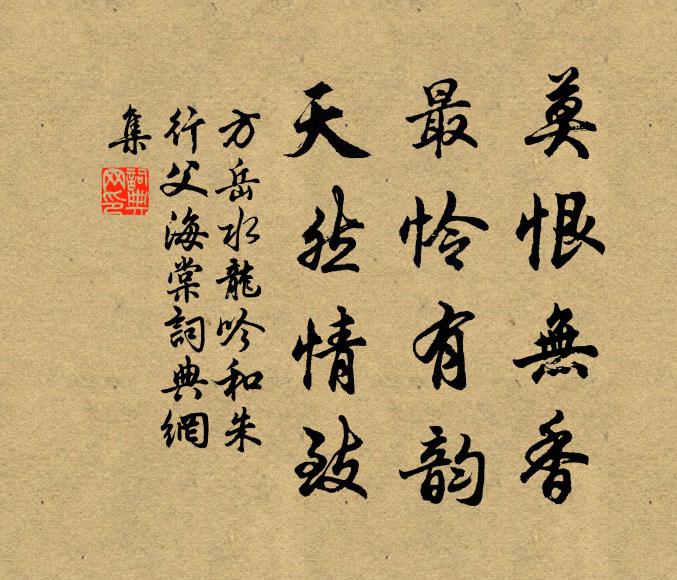 莫恨無香
最怜有韵
天然情致
方岳水龍吟和朱
行父海棠詞典網
集
詞典
网印